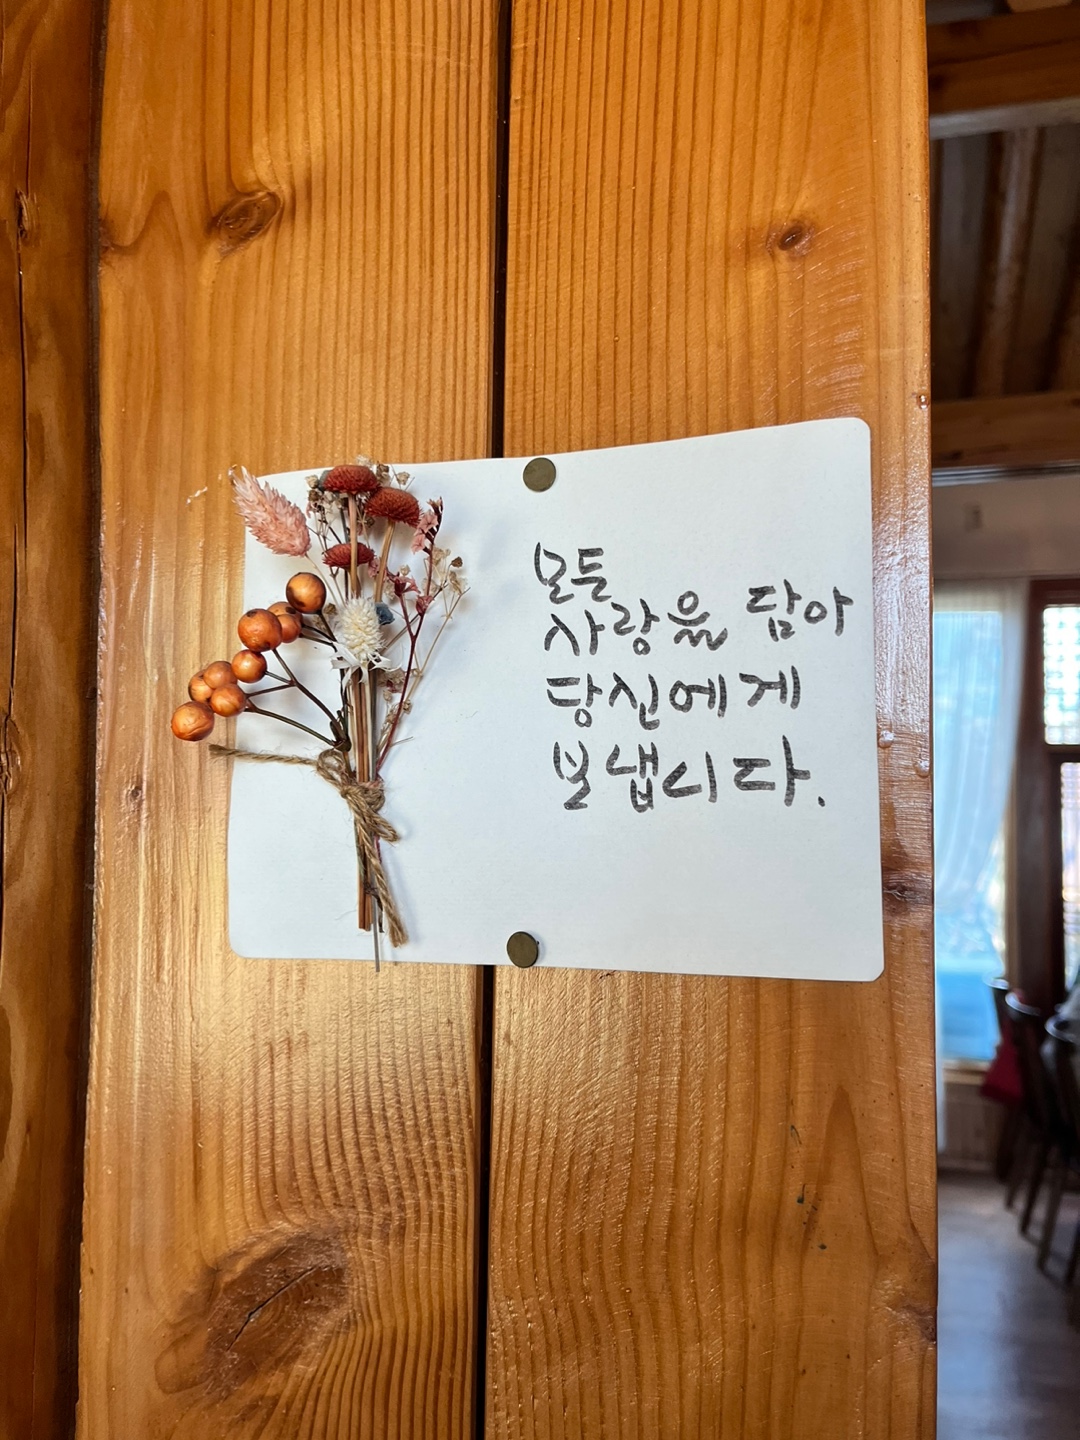 모든
사랑을 담아
당신에게
보냅니다.